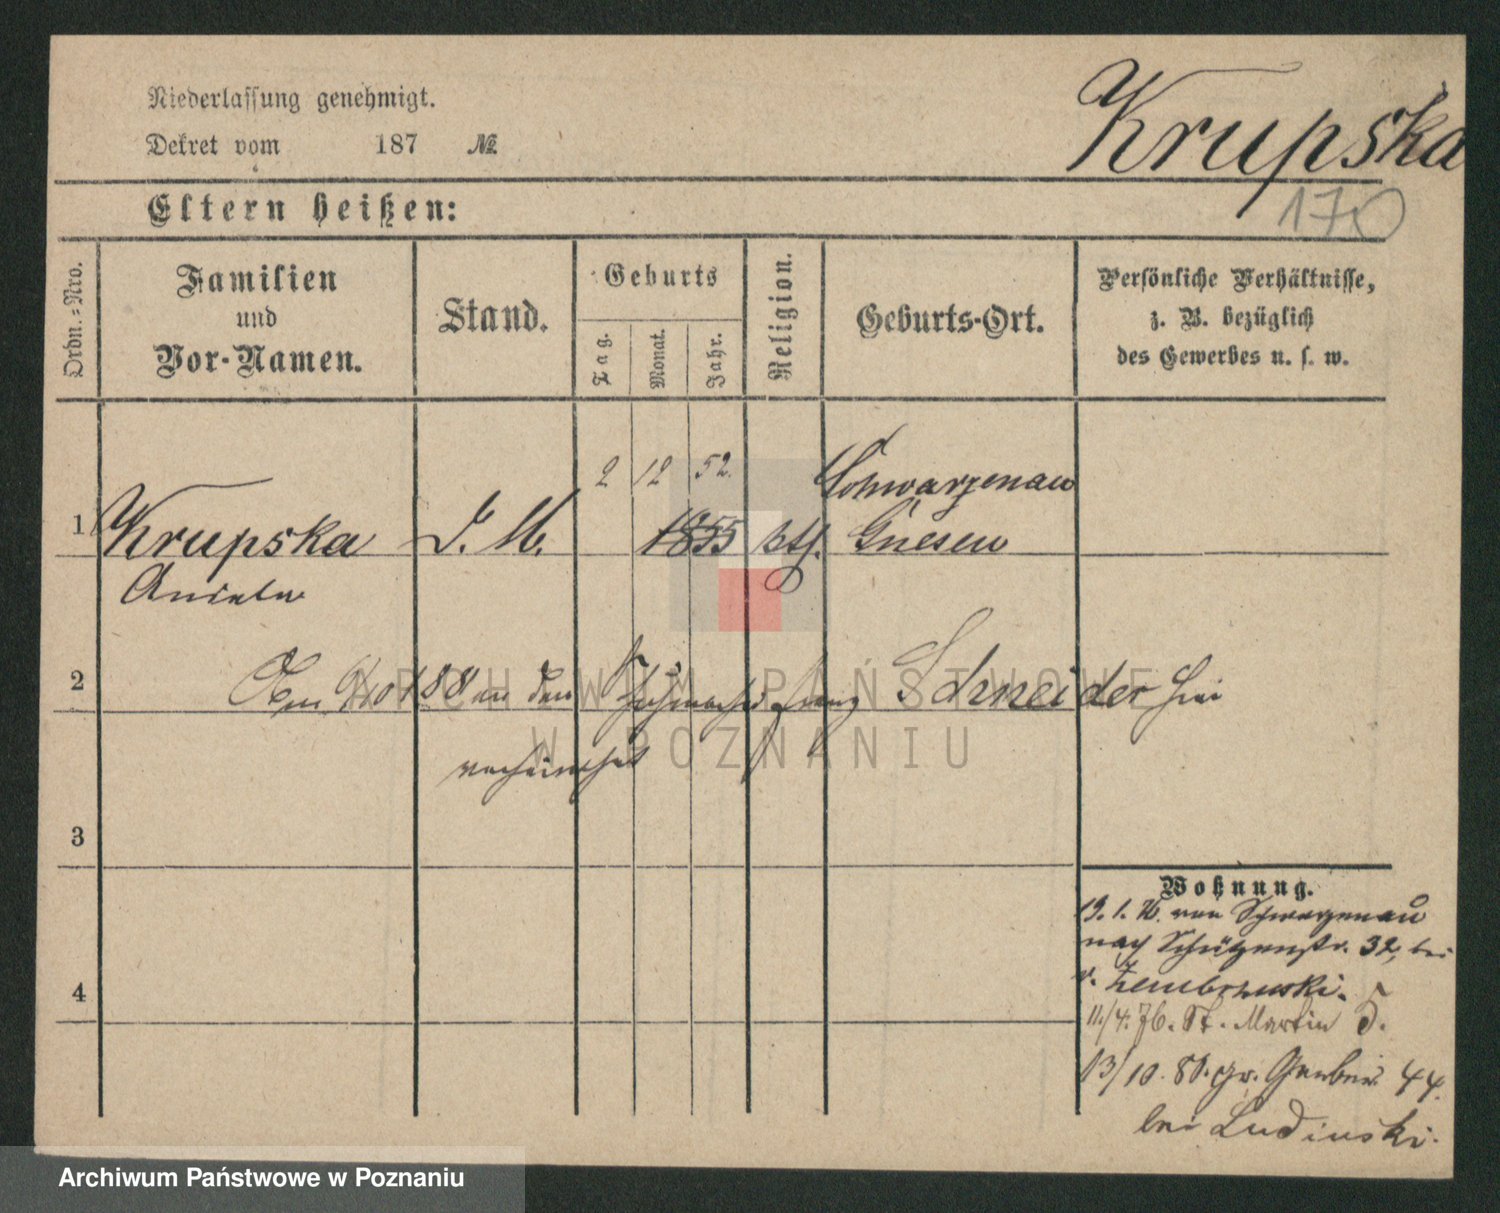 Niederlassung genehmigt.
Dekret vom 187 №
Krupska
170
Eltern heißen:
Ordn.-Nro.
Familien
und
Vor-Namen.
Stand.
Geburts
Tag.
Monat.
Jahr.
Religion.
Geburts-Ort.
Persönliche Verhältnisse,
z. B. bezüglich
des Gewerbes u. s. w.
2 12 52.
Schwarzenau
1 Krupska D. M. 1855 kth. Gnesen
Aniela
2
188 an den Franz Schneider hier
verheirathet
3
4
Wohnung.
19. 1. 76. von Schwarzenau
nach Schützenstr. 32, bei
v. Zembrowski.
11./4. 76. St. Martin 5.
13/10. 80. gr. Gerber 44.
bei Ludinski.
ARCHIWUM PAŃSTWOWE
W POZNANIU
Archiwum Państwowe w Poznaniu